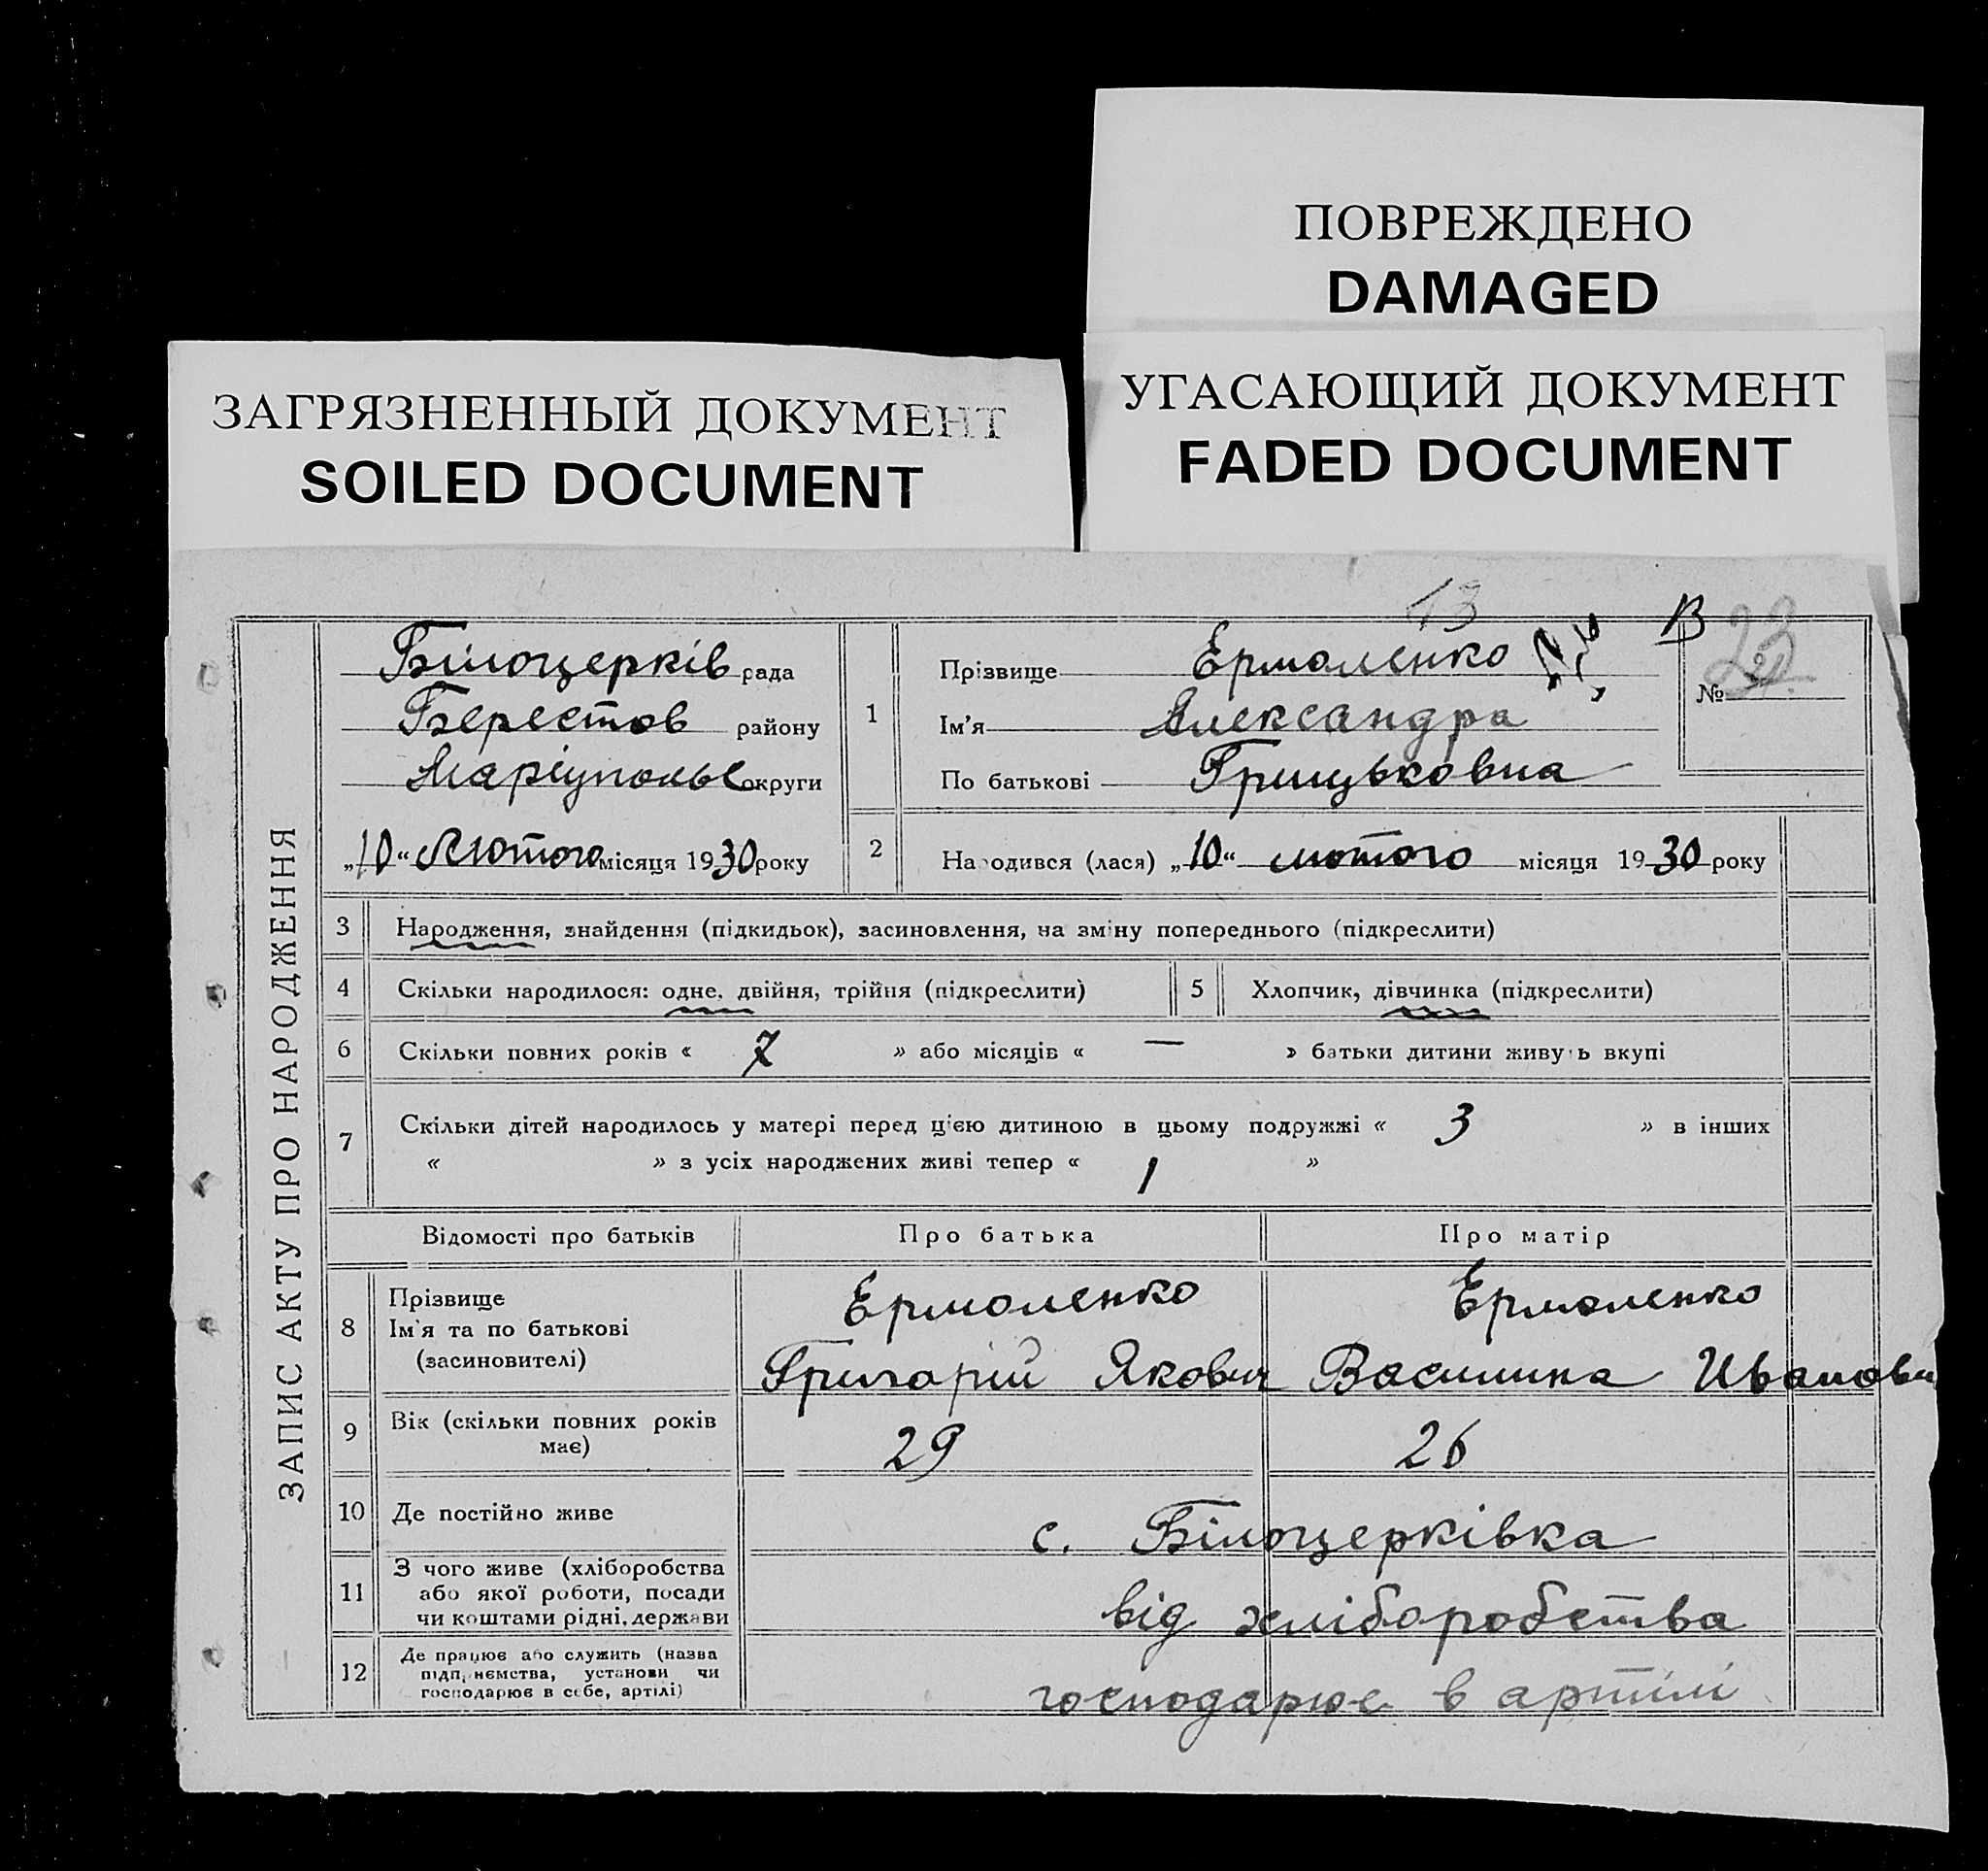 ПОВРЕЖДЕНО
DAMAGED
ЗАГРЯЗНЕННЫЙ ДОКУМЕНТ
SOILED DOCUMENT
УГАСАЮЩИЙ ДОКУМЕНТ
FADED DOCUMENT
13
В
23
№
ЗАПИС АКТУ ПРО НАРОДЖЕННЯ
Білоцерків рада
Берестов району
Маріупольс округи
„10“ Лютого місяця 1930 року
1
Прізвище Ермоленко
Ім'я Александра
По батькові Грицьковна
2 Народився (лася) „10“ лютого місяця 1930 року
3 Народження, знайдення (підкидьок), засиновлення, на зміну попереднього (підкреслити)
4 Скільки народилося: одне, двійня, трійня (підкреслити) 5 Хлопчик, дівчинка (підкреслити)
6 Скільки повних років « 7 » або місяців « — » батьки дитини живуть вкупі
7 Скільки дітей народилось у матері перед цією дитиною в цьому подружжі « 3 » в інших
« » з усіх народжених живі тепер « 1 »
Відомості про батьків Про батька Про матір
8 Прізвище Ермоленко Ермоленко
Ім'я та по батькові Григорій Якович Василина Иванови
(засиновителі)
9 Вік (скільки повних років 29 26
має)
10 Де постійно живе с. Білоцерківка
11 З чого живе (хліборобства
або якої роботи, посади від хліборобства
чи коштами рідні, держави
12 Де працює або служить (назва
підприємства, установи чи господарює в артілі
господарює в себе, артілі)